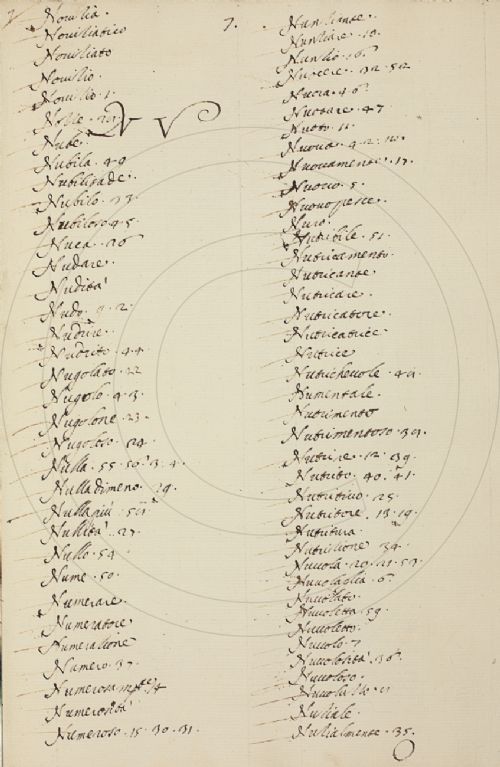 7.
Novilia.
Noviliatico
Noviliato
Novilio.
Novilio. 1.
N V
Nube.
Nubila. 49
Nubilitade.
Nubilo. 23.
Nubiloso 4. 5.
Nuca. 26
Nudare.
Nudità
Nudo. 9. 2.
Nudrire.
Nudrito. 44.
Nugolato. 22
Nugolo. 4. 3.
Nugolone. 23.
Nugoloso. 24.
Nulla. 55. 50. 3. 4.
Nulladimeno. 29.
Nulla più. 51
Nullità. 27.
Nullo. 54
Nume. 50.
Numerare.
Numeratore
Numeratione
Numero. 37.
Numerosamte. 14
Numerosità
Numeroso. 15. 30. 31.
Nuntiante.
Nuntiare. 19.
Nuntio. 16.
Nuocere. 32. 52.
Nuora. 46.
Nuotare. 47
Nuoto. 11.
Nuova. 4. 2. 10.
Nuovamente. 17.
Nuovo. 5.
Nuovo pesce.
Nuro.
Nutribile. 51.
Nutricamento.
Nutricante.
Nutricare.
Nutricatore.
Nutricatrice.
Nutrice
Nutrichevole. 41.
Numentale.
Nutrimento
Nutrimentoso. 39.
Nutrire. 12. 39.
Nutrito. 40. 41.
Nutritivo. 25.
Nutritore. 18. 19.
Nutritura.
Nutritione 34.
Nuvola. 20. 21. 53.
Nuvolaglia. 6.
Nuvolato.
Nuvoletta. 59.
Nuvoletto.
Nuvolo. 7
Nuvolosità. 36.
Nuvoloso.
Nutiale.
Nutialmente. 35.